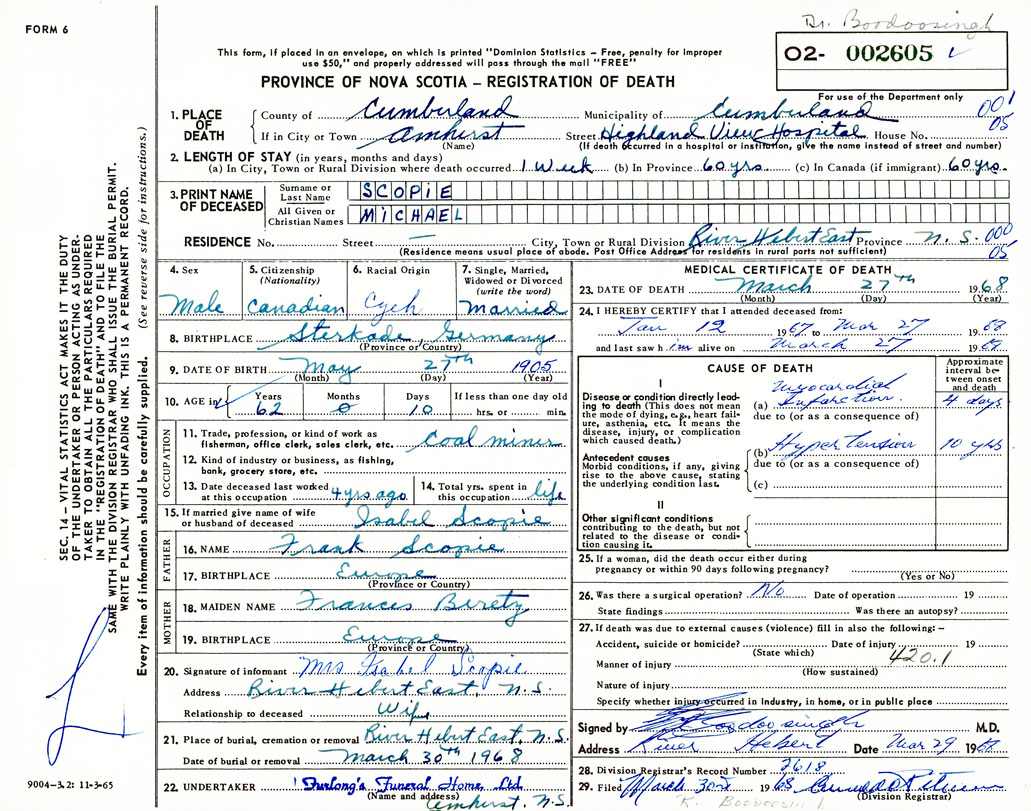 Dr. Boodoosingh
FORM 6
O2- 002605
This form, if placed in an envelope, on which is printed "Dominion Statistics – Free, penalty for improper
use $50," and properly addressed will pass through the mail "FREE"
PROVINCE OF NOVA SCOTIA – REGISTRATION OF DEATH
For use of the Department only
1. PLACE OF DEATH County of Cumberland Municipality of Cumberland 001
If in City or Town Amhirst Street Highland View Hospital House No. 05
(Name) (If death occurred in a hospital or institution, give the name instead of street and number)
2. LENGTH OF STAY (in years, months and days)
(a) In City, Town or Rural Division where death occurred 1 Week (b) In Province 60 yrs. (c) In Canada (if immigrant) 60 yrs.
3. PRINT NAME OF DECEASED Surname or Last Name SCOPiE
All Given or Christian Names MICHAEL
RESIDENCE No. Street — City, Town or Rural Division River Hebert East Province N. S. 000
(Residence means usual place of abode. Post Office Address for residents in rural parts not sufficient) 05
4. Sex Male
5. Citizenship (Nationality) Canadian
6. Racial Origin
7. Single, Married, Widowed or Divorced (write the word) Married
8. BIRTHPLACE Sterkade, Germany
(Province or Country)
9. DATE OF BIRTH May 27th 1905
(Month) (Day) (Year)
10. AGE in Years 62 Months 0 Days 10 If less than one day old hrs. or min.
OCCUPATION
11. Trade, profession, or kind of work as fisherman, office clerk, sales clerk, etc. Coal miner
12. Kind of industry or business, as fishing, bank, grocery store, etc.
13. Date deceased last worked at this occupation 4 yrs ago 14. Total yrs. spent in this occupation life
15. If married give name of wife or husband of deceased Isabel Scopie
FATHER
16. NAME Frank Scopie
17. BIRTHPLACE Europe
(Province or Country)
MOTHER
18. MAIDEN NAME Frances Beretz
19. BIRTHPLACE Europe
(Province or Country)
20. Signature of informant Mrs Isabel Scopie
Address River Hebert East, N. S.
Relationship to deceased Wife
21. Place of burial, cremation or removal River Hebert East, N.S.
Date of burial or removal March 30th 1968
22. UNDERTAKER Furlong's Funeral Home, Ltd.
(Name and address) Amherst, N.S.
MEDICAL CERTIFICATE OF DEATH
23. DATE OF DEATH March 27th 1968
(Month) (Day) (Year)
24. I HEREBY CERTIFY that I attended deceased from:
Jan 12 1967 to Mar 27 1968
and last saw him alive on March 27 1968
CAUSE OF DEATH
Approximate interval between onset and death
I
Disease or condition directly leading to death (This does not mean the mode of dying, e.g., heart failure, asthenia, etc. It means the disease, injury, or complication which caused death.)
(a) Myocardial Infarction. 4 days
due to (or as a consequence of)
Antecedent causes
Morbid conditions, if any, giving rise to the above cause, stating the underlying condition last.
(b) Hypertension 10 yrs
due to (or as a consequence of)
(c)
II
Other significant conditions
contributing to the death, but not related to the disease or condition causing it.
25. If a woman, did the death occur either during pregnancy or within 90 days following pregnancy?
(Yes or No)
26. Was there a surgical operation? No Date of operation 19
State findings Was there an autopsy?
27. If death was due to external causes (violence) fill in also the following: –
Accident, suicide or homicide? Date of injury 19
(State which) 420.1
Manner of injury
(How sustained)
Nature of injury
Specify whether injury occurred in Industry, in home, or in public place
Signed by Boodoosingh M.D.
Address River Hebert Date Mar 29 1968
28. Division Registrar's Record Number 2618
29. Filed March 30th 1968
(Division Registrar)
SEC. 14 – VITAL STATISTICS ACT MAKES IT THE DUTY
OF THE UNDERTAKER OR PERSON ACTING AS UNDER-
TAKER TO OBTAIN ALL THE PARTICULARS REQUIRED
IN THE "REGISTRATION OF DEATH" AND TO FILE THE
SAME WITH THE DIVISION REGISTRAR WHO SHALL ISSUE THE BURIAL PERMIT.
WRITE PLAINLY WITH UNFADING INK. THIS IS A PERMANENT RECORD.
Every item of information should be carefully supplied. (See reverse side for instructions.)
9004-3.2: 11-3-65